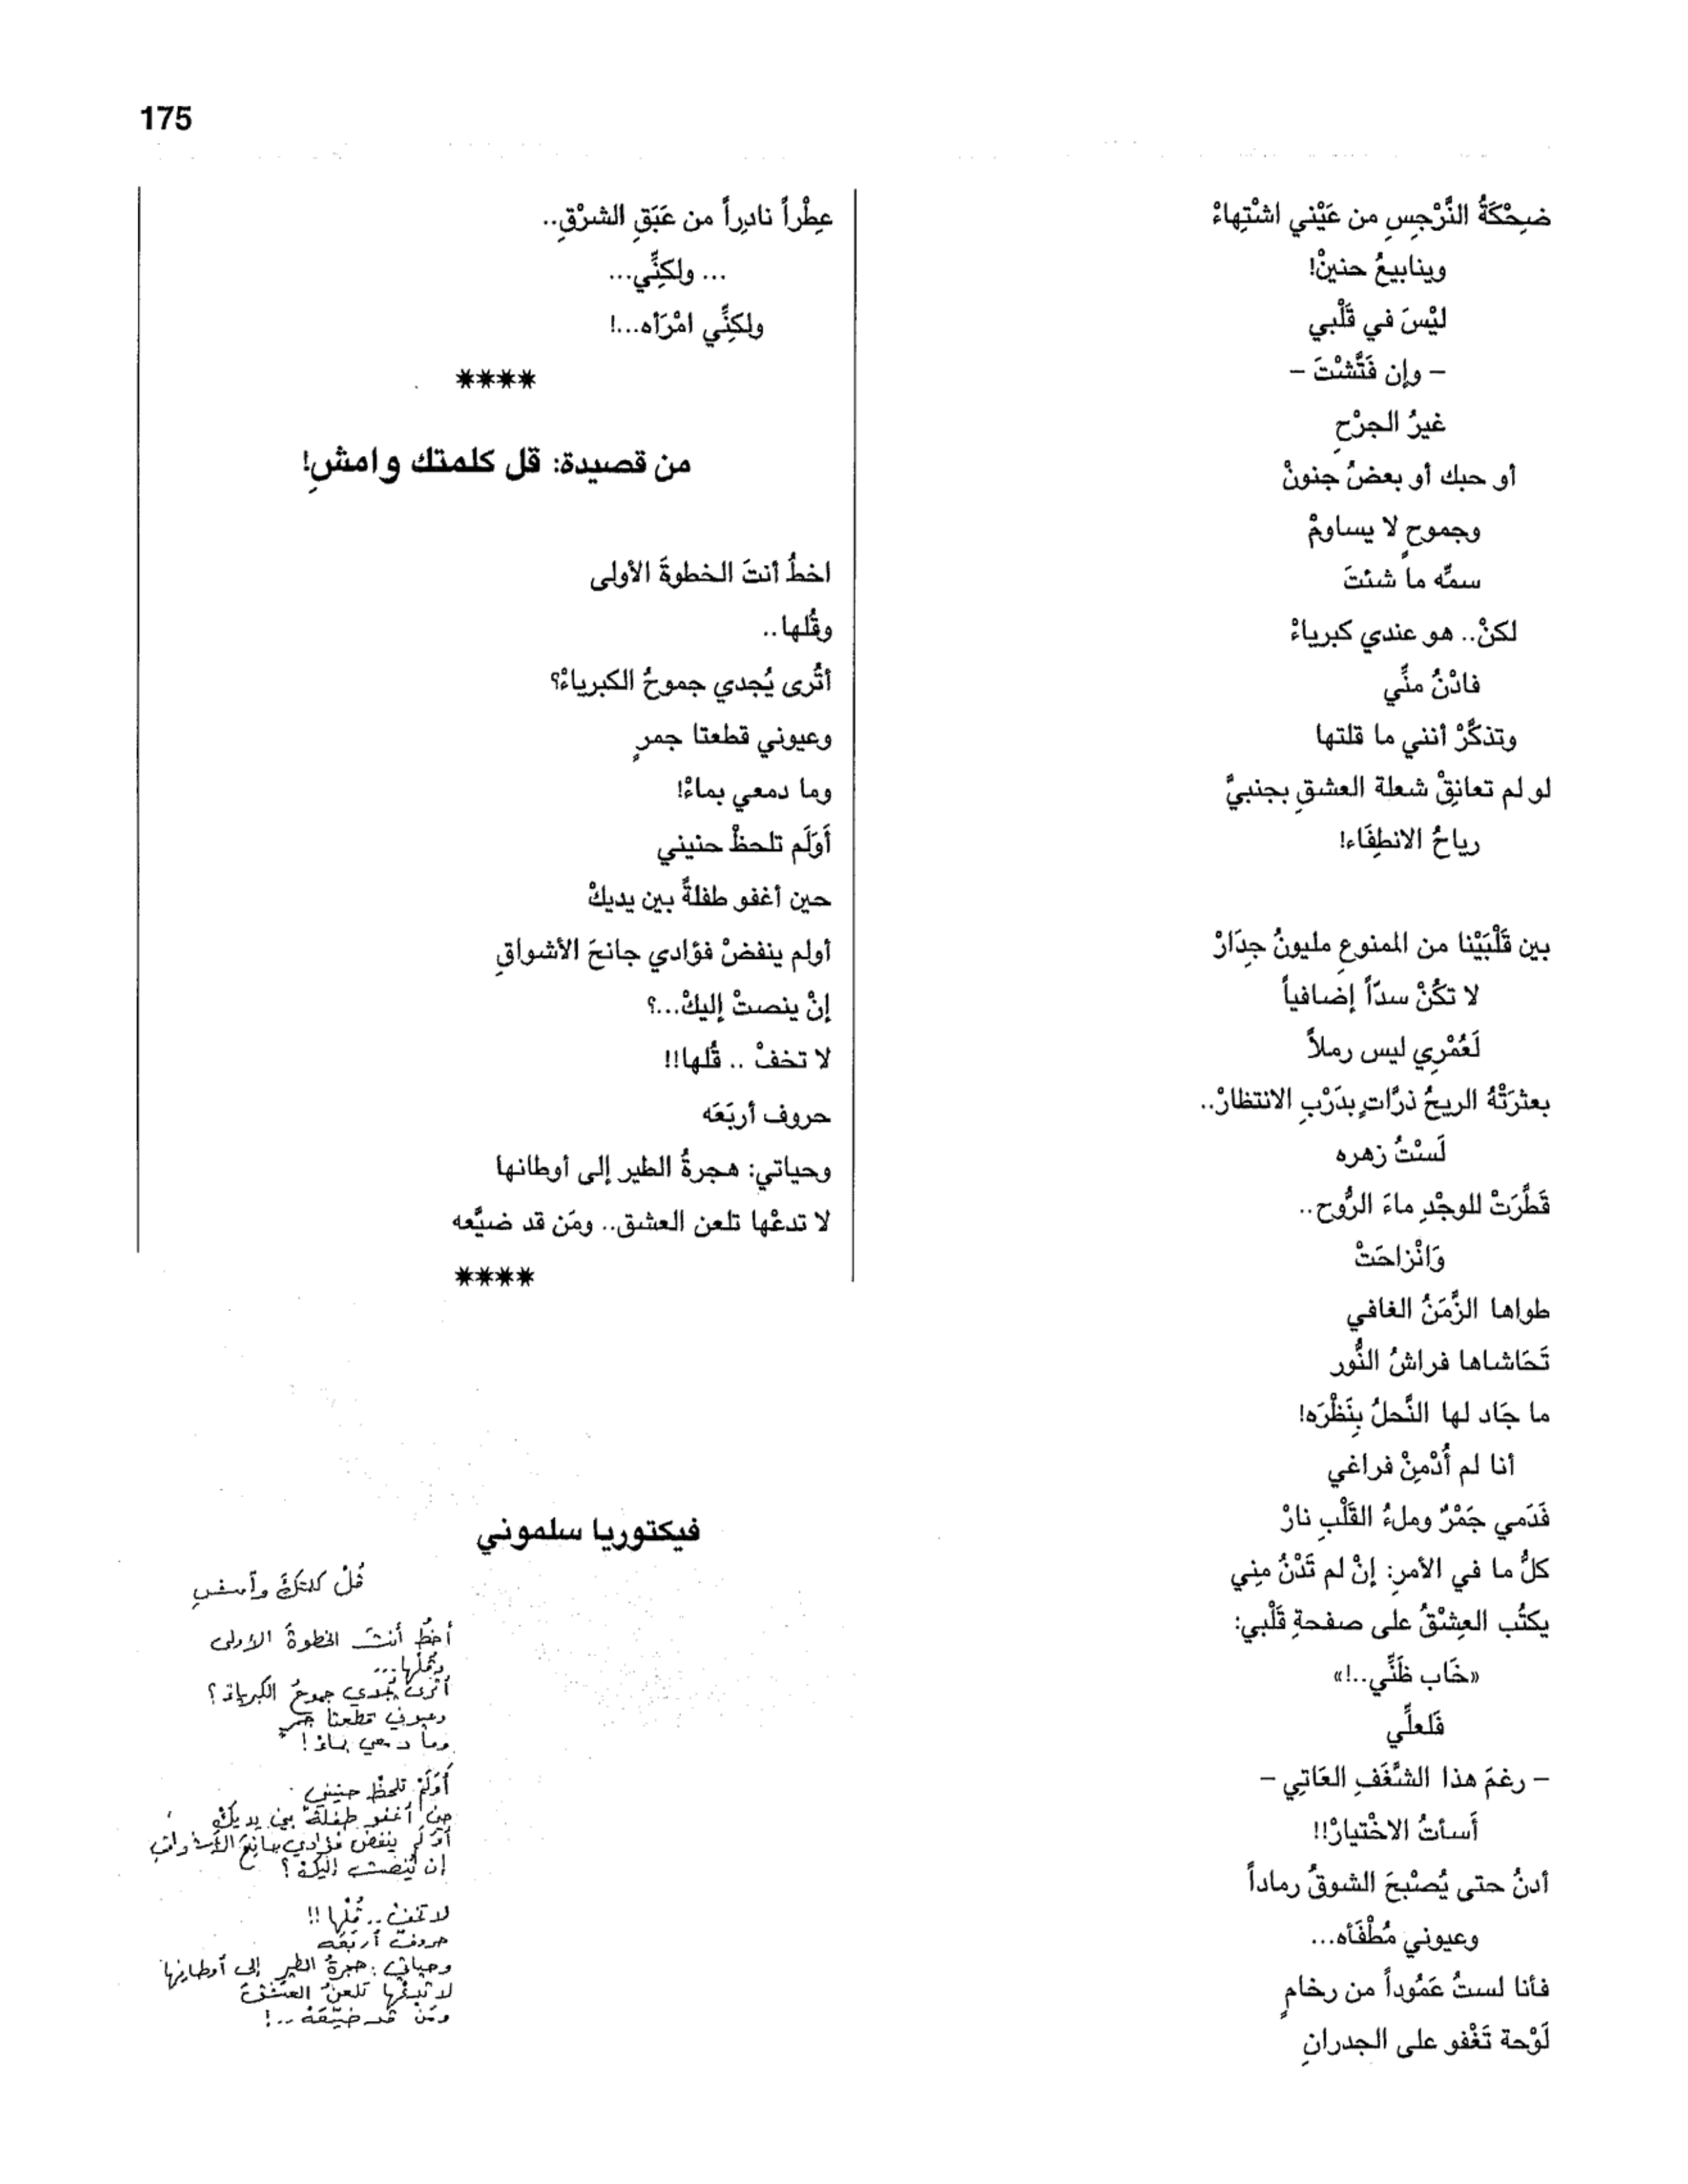 175
ضِحْكَةُ النَّرْجِسِ من عَيْني اشْتِهاءْ
وينابيعُ حنينْ!
ليْسَ في قَلْبي
– وإن فَتَّشْتَ –
غيرُ الجرْحِ
أو حبك أو بعضُ جنونْ
وجموحٍ لا يساومْ
سمِّه ما شئتَ
لكنْ.. هو عندي كبرياءْ
فادْنُ منِّي
وتذكَّرْ أنني ما قلتها
لو لم تعانِقْ شعلة العشقِ بجنبيَّ
رياحُ الانطِفَاء!
بين قَلْبَيْنا من الممنوعِ مليونُ جِدَارْ
لا تكُنْ سدّاً إضافياً
لَعُمْرِي ليس رملاً
بعثرَتْهُ الريحُ ذرَّاتٍ بدَرْبِ الانتظارْ..
لَسْتُ زهره
قَطَّرَتْ للوجْدِ ماءَ الرُّوح..
وَانْزاحَتْ
طواها الزَّمَنُ الغافي
تَحَاشاها فراشُ النُّور
ما جَاد لها النَّحلُ بِنَظْرَه!
أنا لم أُدْمِنْ فراغي
فَدَمي جَمْرٌ وملءُ القَلْبِ نارْ
كلُّ ما في الأمرِ: إنْ لم تَدْنُ مِني
يكتُب العِشْقُ على صفحةِ قَلْبي:
«خَاب ظَنِّي..!»
فَلعلِّي
– رغمَ هذا الشَّغَفِ العَاتِي –
أَسأتُ الاخْتيارْ!!
أدنُ حتى يُصْبحَ الشوقُ رماداً
وعيوني مُطْفَأه...
فأنا لستُ عَمُوداً من رخامٍ
لَوْحة تَغْفو على الجدرانِ
عِطْراً نادِراً من عَبَقِ الشرْقِ..
... ولكنِّي...
ولكنِّي امْرَأه...!
****
من قصيدة: قل كلمتك وامشِ!
اخطُ أنتَ الخطوةَ الأولى
وقُلها..
أتُرى يُجدي جموحُ الكبرياءْ؟
وعيوني قطعتا جمرٍ
وما دمعي بماءْ!
أَوَلَم تلحظْ حنيني
حين أغفو طفلةً بين يديكْ
أولم ينفضْ فؤادي جانحَ الأشواقِ
إنْ ينصتْ إليكْ...؟
لا تخفْ .. قُلها!!
حروف أربَعَه
وحياتي: هجرةُ الطير إلى أوطانها
لا تدعْها تلعن العشق.. ومَن قد ضيَّعه
****
فيكتوريا سلموني
قُلْ كلمتَكَ وآمشِ
أخطُ أنتَ الخطوةَ الأولى
وقُلْها...
أتُرى يُجدي جموحُ الكبرياءْ؟
وعيوني قطعتا جمرٍ
وما دمعي بماءْ!
أَوَلَمْ تلحظْ حنيني
حين أغفو طفلةً بين يديكْ
أوَلَم ينفض فؤادي جانحَ الأشواقِ
إن يُنصت إليكْ؟
لا تخفْ.. قُلْها!!
حروفٌ أربَعَه
وحياتي: هجرةُ الطير إلى أوطانها
لا تَدَعْها تلعنُ العشقَ
ومَنْ قد ضيّعَهْ..!